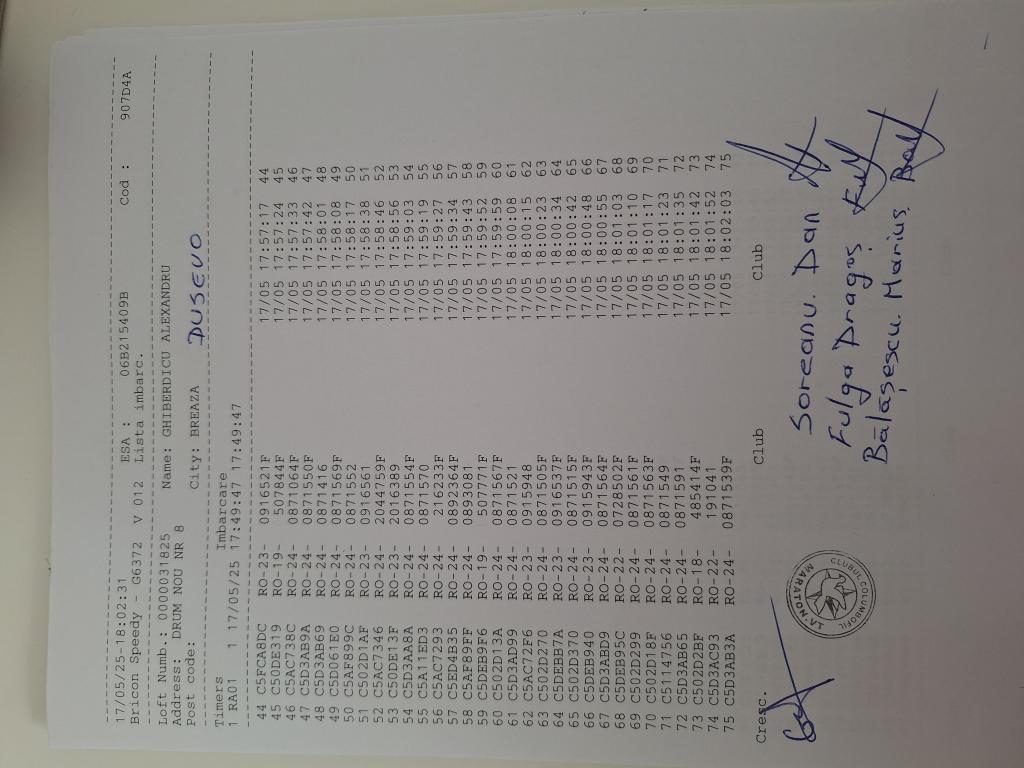 17/05/25-18:02:31
Bricon Speedy - G6372 V 012 ESA : 06B215409B Cod : 907D4A
Lista imbarc.
Loft Numb.: 0000031825 Name: GHIBERDICU ALEXANDRU
Address: DRUM NOU NR 8
Post code: City: BREAZA DUSEVO
Timers Imbarcare
1 RA01 1 17/05/25 17:49:47 17:49:47
44 C5FCA8DC RO-23- 0916521F 17/05 17:57:17 44
45 C50DE319 RO-19- 507844F 17/05 17:57:24 45
46 C5AC738C RO-24- 0871064F 17/05 17:57:33 46
47 C5D3AB9A RO-24- 0871550F 17/05 17:57:42 47
48 C5D3AB69 RO-24- 0871416 17/05 17:58:01 48
49 C5D061E0 RO-24- 0871569F 17/05 17:58:08 49
50 C5AF899C RO-24- 0871552 17/05 17:58:17 50
51 C502D1AF RO-23- 0916561 17/05 17:58:38 51
52 C5AC7346 RO-24- 2044759F 17/05 17:58:46 52
53 C50DE13F RO-23- 2016389 17/05 17:58:56 53
54 C5D3AA8A RO-24- 0871554F 17/05 17:59:03 54
55 C5A11ED3 RO-24- 0871570 17/05 17:59:19 55
56 C5AC7293 RO-24- 216233F 17/05 17:59:27 56
57 C5ED4B35 RO-24- 0892364F 17/05 17:59:34 57
58 C5AF89FF RO-24- 0893081 17/05 17:59:43 58
59 C5DEB9F6 RO-19- 507771F 17/05 17:59:52 59
60 C502D13A RO-24- 0871567F 17/05 17:59:59 60
61 C5D3AD99 RO-24- 0871521 17/05 18:00:08 61
62 C5AC72F6 RO-23- 0915948 17/05 18:00:15 62
63 C502D270 RO-24- 0871505F 17/05 18:00:23 63
64 C5DEBB7A RO-23- 0916537F 17/05 18:00:34 64
65 C502D370 RO-24- 0871515F 17/05 18:00:42 65
66 C5DEB940 RO-23- 0915943F 17/05 18:00:48 66
67 C5D3ABD9 RO-24- 0871564F 17/05 18:00:55 67
68 C5DEB95C RO-22- 0728502F 17/05 18:01:03 68
69 C502D299 RO-24- 0871561F 17/05 18:01:10 69
70 C502D18F RO-24- 0871563F 17/05 18:01:17 70
71 C5114756 RO-24- 0871549 17/05 18:01:23 71
72 C5D3AB65 RO-24- 0871591 17/05 18:01:35 72
73 C502D2BF RO-18- 485414F 17/05 18:01:42 73
74 C5D3AC93 RO-22- 191041 17/05 18:01:52 74
75 C5D3AB3A RO-24- 0871539F 17/05 18:02:03 75
Cresc. Club Club
Soreanu. Dan
Fulga Dragoș
Bălășescu. Marius.
CLUBUL COLUMBOFIL
MARATON'A1